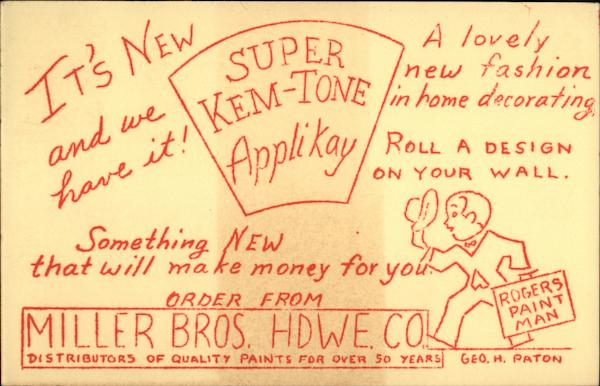 IT'S NEW
and we
have it!
SUPER
KEM-TONE
Applikay
A lovely
new fashion
in home decorating
ROLL A DESIGN
ON YOUR WALL.
Something NEW
that will make money for you.
ORDER FROM
MILLER BROS. HDWE. CO.
DISTRIBUTORS OF QUALITY PAINTS FOR OVER 50 YEARS
ROGERS
PAINT
MAN
GEO. H. PATON